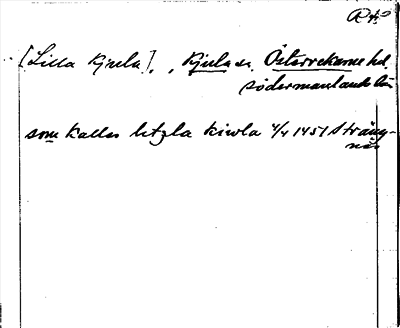 [Lilla Kjula], , Kjula sn. Österrekarne hd.
Södermanlands län
som kallas letzla kiwla 4/4 1451 Sträng-
näs